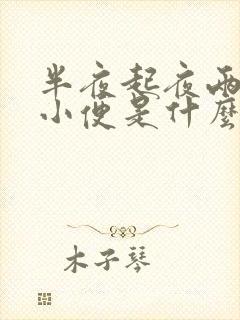 半夜起夜兩
小便是什麼
木子琴